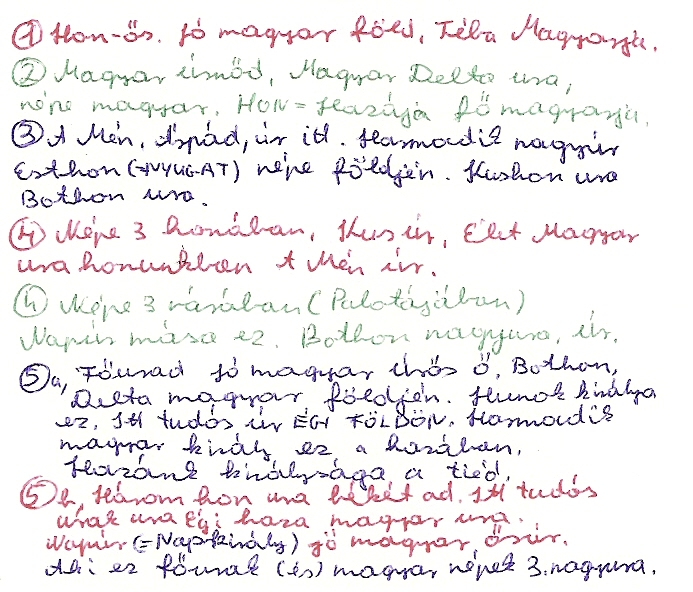 ① Hon-ős. Jó magyar föld, Téba Magyarja.
② Magyar ősmód, Magyar Delta ura,
népe magyar. HON = Hazája fő magyarja.
③ A Mén, Árpád, úr itt. Harmadik nagyúr
Esthon (=NYUGAT) népe földjén. Kushon ura
Bothon ura.
④ Népe 3 honában, Kus úr, Élet Magyar
ura honunkban A Mén úr.
④ Népe 3 várában (Palotájában)
Napúr mása ez. Bothon nagyura, úr.
⑤ a, Főurad jó magyar úrős ő, Bothon,
Delta magyar földjén. Hunok királya
ez. Itt tudós úr ÉGI FÖLDÖN. Harmadik
magyar király ez a hazában.
Hazánk királysága a tiéd.
⑤ b, Három hon ura békét ad. Itt tudós
urak ura Égi haza magyar ura.
Napúr (=Napkirály) jó magyar ősúr.
Aki ez főurak (és) magyar népek 3. nagyura.